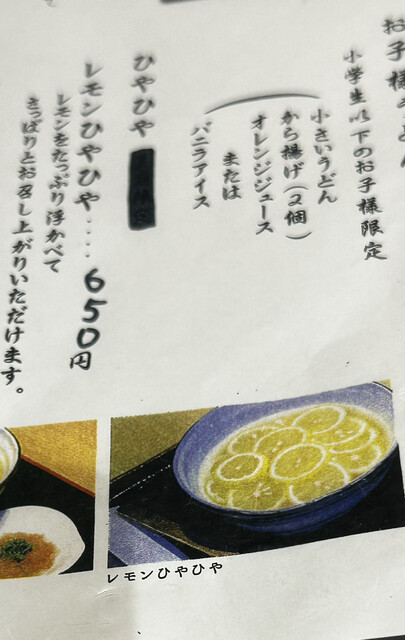 お子様うどん
小学生以下のお子様限定
小さいうどん
から揚げ(2個)
オレンジジュース
または
バニラアイス
ひやひや
レモンひやひや‥‥650円
レモンをたっぷり浮かべて
さっぱりとお召し上がりいただけます。
レモンひやひや